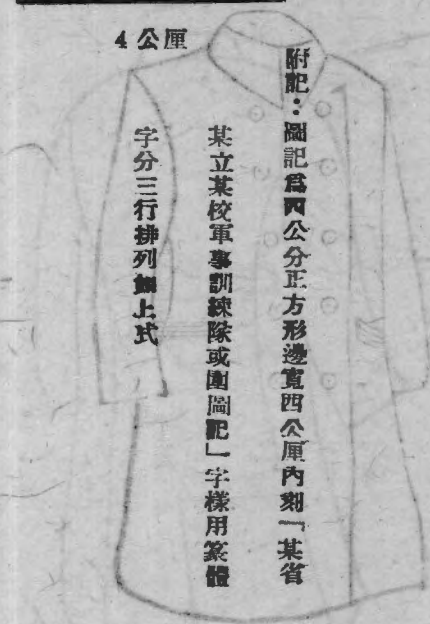 4公厘
附記：圖記爲四公分正方形邊寬四公厘內刻「某省
某立某校軍事訓練隊或團圖記」字樣用篆體
字分三行排列如上式